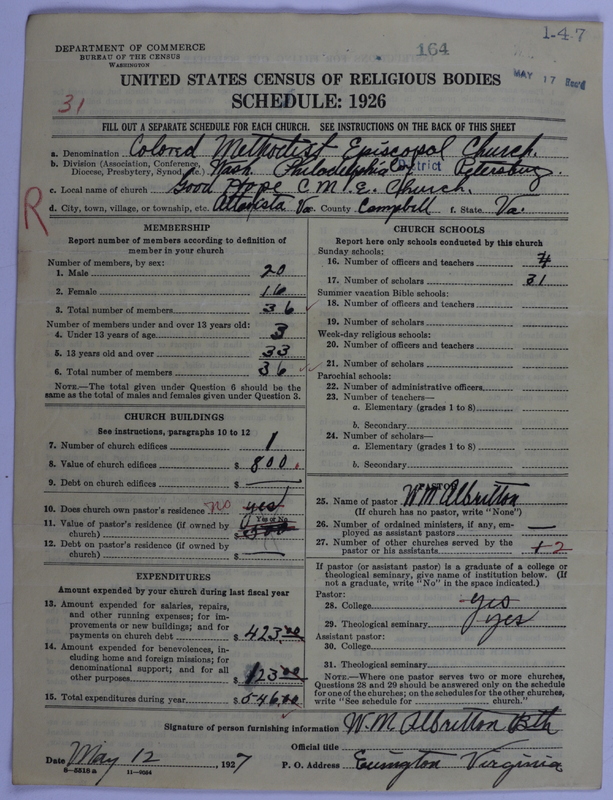 DEPARTMENT OF COMMERCE
BUREAU OF THE CENSUS
WASHINGTON
164
1-47
MAY 17 Rec'd
UNITED STATES CENSUS OF RELIGIOUS BODIES
31
SCHEDULE: 1926
FILL OUT A SEPARATE SCHEDULE FOR EACH CHURCH. SEE INSTRUCTIONS ON THE BACK OF THIS SHEET
a. Denomination Colored Methodist Episcopal Church.
b. Division (Association, Conference, Diocese, Presbytery, Synod, etc.) Wash. Philadelphia District Petersburg.
c. Local name of church Good Hope C. M. E. Church.
d. City, town, village, or township, etc. Altavista Va e. County Campbell f. State Va.
R
MEMBERSHIP
Report number of members according to definition of
member in your church
Number of members, by sex:
1. Male 20
2. Female 16
3. Total number of members 36
Number of members under and over 13 years old:
4. Under 13 years of age 3
5. 13 years old and over 33
6. Total number of members 36
NOTE.—The total given under Question 6 should be
same as the total of males and females given under Question 3.
CHURCH BUILDINGS
See instructions, paragraphs 10 to 12
7. Number of church edifices 1
8. Value of church edifices $ 800.
9. Debt on church edifices $
10. Does church own pastor's residence no yes
Yes or No
11. Value of pastor's residence (if owned by
church) $
12. Debt on pastor's residence (if owned by
church) $
EXPENDITURES
Amount expended by your church during last fiscal year
13. Amount expended for salaries, repairs,
and other running expenses; for im-
provements or new buildings; and for
payments on church debt $ 423.00
14. Amount expended for benevolences, in-
cluding home and foreign missions; for
denominational support; and for all
other purposes $ 123.00
15. Total expenditures during year $ 546.00
CHURCH SCHOOLS
Report here only schools conducted by this church
Sunday schools:
16. Number of officers and teachers 4
17. Number of scholars 31
Summer vacation Bible schools:
18. Number of officers and teachers
19. Number of scholars
Week-day religious schools:
20. Number of officers and teachers
21. Number of scholars
Parochial schools:
22. Number of administrative officers
23. Number of teachers—
a. Elementary (grades 1 to 8)
b. Secondary
24. Number of scholars—
a. Elementary (grades 1 to 8)
b. Secondary
PASTOR
25. Name of pastor W M Albritton
(If church has no pastor, write "None")
26. Number of ordained ministers, if any, em-
ployed as assistant pastors —
27. Number of other churches served by the
pastor or his assistants 1 2
If pastor (or assistant pastor) is a graduate of a college or
theological seminary, give name of institution below. (If
not a graduate, write "No" in the space indicated.)
Pastor:
28. College yes
29. Theological seminary yes
Assistant pastor:
30. College
31. Theological seminary
NOTE.—Where one pastor serves two or more churches,
Questions 28 and 29 should be answered only on the schedule
for one of the churches; on the schedules for the other churches,
write "See schedule for church."
Signature of person furnishing information W. M. Albritton
Official title
Date May 12, 1927 P. O. Address Evington Virginia
8—5518 a 11—9034